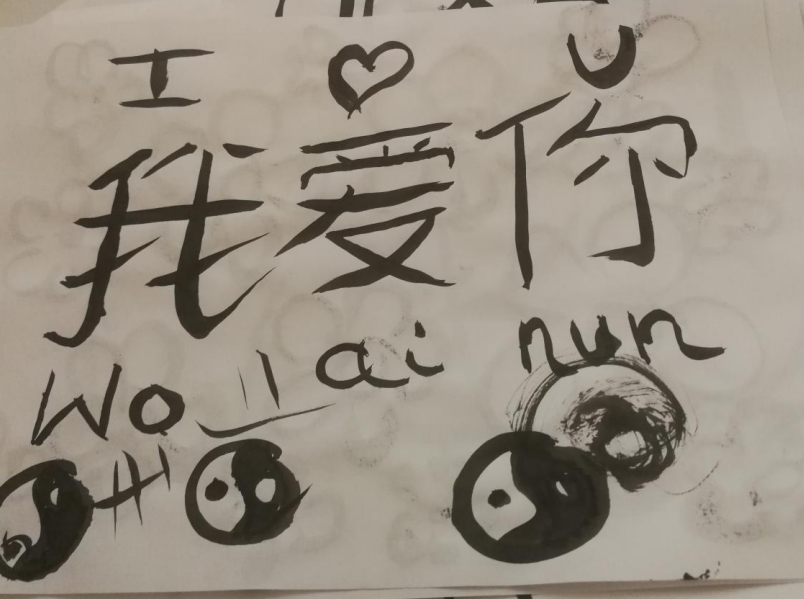 I ♡ U
我爱你
Wo ai nun